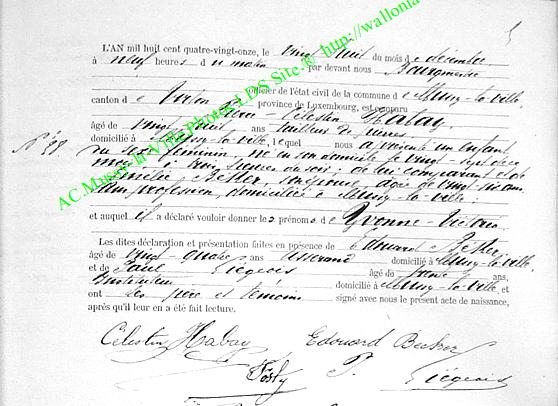 L'AN mil huit cent quatre-vingt-onze, le vingt huit du mois de décembre
à neuf heures du matin par devant nous Bourgmestre
officier de l'état civil de la commune de Mussy-la-ville,
canton de Virton province de Luxembourg, est comparu
Pierre-Célestin Habay
âgé de vingt huit ans tailleur de pierres
domicilié à Mussy-la-ville, lequel nous a présenté un enfant
du sexe féminin, né en son domicile le vingt-sept de ce
mois, à heures du soir; de lui comparant et de
Emilie Becker, son épouse, âgée de vingt ans,
sans profession, domiciliée à Mussy-la-ville;
et auquel il a déclaré vouloir donner les prénoms de Yvonne-
Les dites déclaration et présentation faites en présence de Edouard Becker
âgé de vingt-quatre ans Tisserand domicilié à Mussy-la-ville
et de Paul Liégeois âgé de trente ans,
Instituteur domicilié à Mussy-la-ville, et
ont les père et témoins signé avec nous le présent acte de naissance,
après qu'il leur en a été fait lecture.
Célestin Habay Edouard Becker
P. Liégeois
N° 28
AC Mussy-la-Ville Photos LDS Site ® http://wallonia